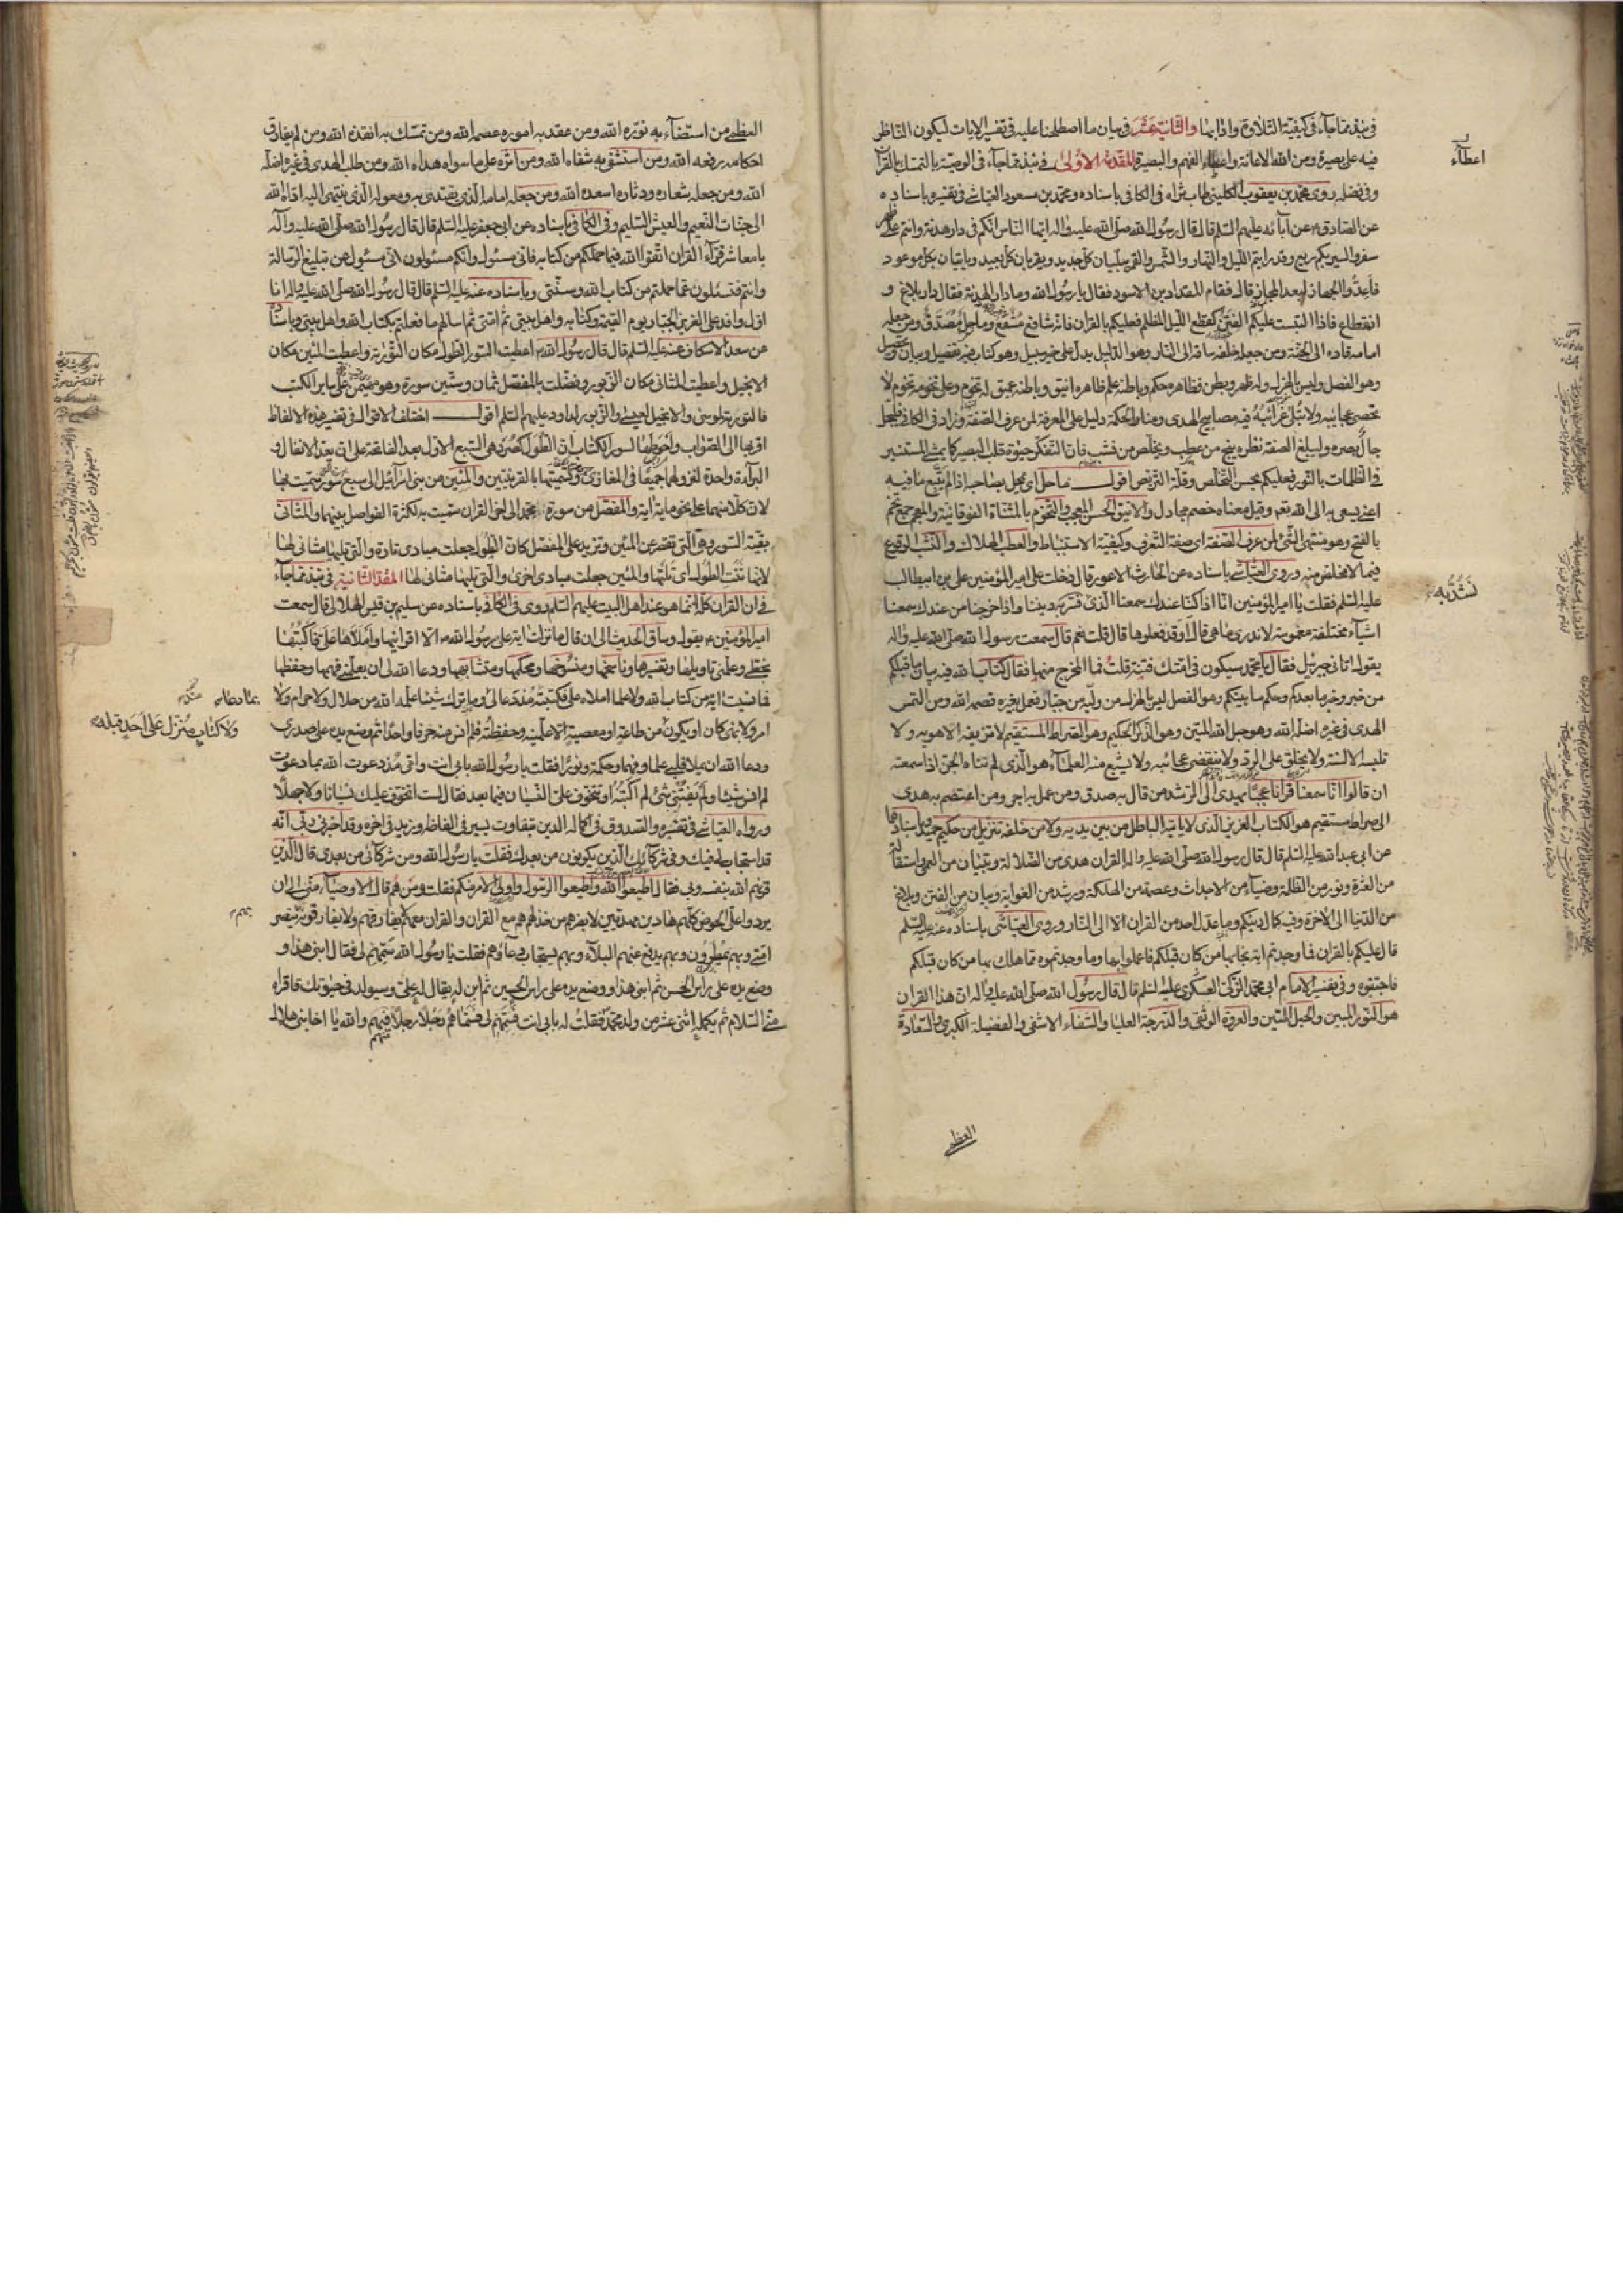 في نبذ مما جاء في كيفية التلاوة وآدابها والثانية عشر في بيان ما اصطلحنا عليه في تفسير الايات ليكون الناظر
فيه على بصيرة ومن الله الاعانة واعطاء الفهم والبصيرة المقدمة الاولى في نبذ مما جاء في الوصية بالتمسك بالقرآن
وفي فضله روى محمد بن يعقوب الكليني طاب ثراه في الكافي باسناده ومحمد بن مسعود العياشي في تفسيره باسناده
عن الصادق عن آبائه عليهم السلم قال قال رسول الله صلى الله عليه واله ايها الناس انكم في دار هدنة وانتم على ظهر
سفر والسير بكم سريع وقد رايتم الليل والنهار والشمس والقمر يبليان كل جديد ويقربان كل بعيد وياتيان بكل موعود
فاعدوا الجهاز لبعد المجاز قال فقام المقداد بن الاسود فقال يا رسول الله وما دار الهدنة فقال دار بلاغ و
انقطاع فاذا التبست عليكم الفتن كقطع الليل المظلم فعليكم بالقران فانه شافع مشفع وماحل مصدق ومن جعله
امامه قاده الى الجنة ومن جعله خلفه ساقه الى النار وهو الدليل يدل على خير سبيل وهو كتاب فيه تفصيل وبيان وتحصيل
وهو الفصل وليس بالهزل وله ظهر وبطن فظاهره حكم وباطنه علم ظاهره انيق وباطنه عميق له تخوم وعلى تخومه تخوم لا
تحصى عجائبه ولا تبلى غرائبه فيه مصابيح الهدى ومنار الحكمة ودليل على المعرفة لمن عرف الصفة وزاد في الكافي فليجل
جال بصره وليبلغ الصفة نظره ينج من عطب ويخلص من نشب فان التفكر حيوة قلب البصير كما يمشي المستنير
في الظلمات بالنور فعليكم بحسن التخلص وقلة التربص اقول ماحل اي يمحل بصاحبه اذا لم يتبع ما فيه
اعني يسعى به الى الله تعالى وقيل معناه خصم مجادل والانيق الحسن المعجب والتخوم بالمثناة الفوقانية والمعجمة جمع تخم
بالفتح وهو منتهى الشئ لمن عرف الصفة اي صفة التعرف وكيفية الاستنباط والعطب الهلاك والنشب الوقوع
فيما لا مخلص منه وروى العياشي باسناده عن الحارث الاعور قال دخلت على امير المؤمنين علي بن ابيطالب
عليه السلم فقلت يا امير المؤمنين انا اذا كنا عندك سمعنا الذي به ديننا واذا خرجنا من عندك سمعنا
اشياء مختلفة مغموسة لا ندري ما هي قال او قد فعلوها قال قلت نعم قال سمعت رسول الله صلى الله عليه واله
يقول اتاني جبرئيل فقال يا محمد سيكون في امتك فتنة قلت فما المخرج منها فقال كتاب الله فيه بيان ما قبلكم
من خبر وخبر ما بعدكم وحكم ما بينكم وهو الفصل ليس بالهزل من وليه من جبار فعمل بغيره قصمه الله ومن التمس
الهدى في غيره اضله الله وهو حبل الله المتين وهو الذكر الحكيم وهو الصراط المستقيم لا تزيغه الاهويه ولا
تلبسه الالسنة ولا يخلق على الرد ولا ينقضي عجائبه ولا يشبع منه العلماء هو الذي لم تناه الجن اذا سمعته
ان قالوا انا سمعنا قرآنا عجبا يهدي الى الرشد من قال به صدق ومن عمل به اجر ومن اعتصم به هدي
الى صراط مستقيم هو الكتاب العزيز الذي لا ياتيه الباطل من بين يديه ولا من خلفه تنزيل من حكيم حميد وباسنادهما
عن ابي عبد الله عليه السلم قال قال رسول الله صلى الله عليه واله القران هدى من الضلالة وتبيان من العمى واستقالة
من العثرة ونور من الظلمة وضياء من الاحداث وعصمة من الهلكة ورشد من الغواية وبيان من الفتن وبلاغ
من الدنيا الى الاخرة وفيه كمال دينكم وما عدل احد من القران الا الى النار وروى العياشي باسناده عنه عليه السلم
قال عليكم بالقران فما وجدتم آية نجا بها من كان قبلكم فاعملوا بها وما وجدتموه مما هلك بها من كان قبلكم
فاجتنبوه وفي تفسير الامام ابي محمد الزكي العسكري عليه السلم قال قال رسول الله صلى الله عليه واله ان هذا القران
هو النور المبين والحبل المتين والعروة الوثقى والدرجة العليا والشفاء الاشفى والفضيلة الكبرى والسعادة
العظمى
اعطاء
نشد به
العظمى من استضاء به نوره الله ومن عقد به اموره عصمه الله ومن تمسك به انقذه الله ومن لم يفارق
احكامه رفعه الله ومن استشفى به شفاه الله ومن آثره على ما سواه هداه الله ومن طلب الهدى في غيره اضله
الله ومن جعله شعاره ودثاره اسعده الله ومن جعله امامه الذي يقتدى به ومعوله الذي ينتهي اليه اداه الله
الى جنات النعيم والعيش السليم وفي الكافي باسناده عن ابي جعفر عليه السلم قال قال رسول الله صلى الله عليه وآله
يا معاشر قراء القران اتقوا الله فيما حملكم من كتابه فاني مسئول وانكم مسئولون اني مسئول عن تبليغ الرسالة
وانتم فتسئلون عما حملتم من كتاب الله وسنتي وباسناده عنه عليه السلم قال قال رسول الله صلى الله عليه واله انا
اول وافد على العزيز الجبار يوم القيمة وكتابه واهل بيتي ثم امتي ثم اسالهم ما فعلتم بكتاب الله واهل بيتي وباسناده
عن سعد الاسكاف عنه عليه السلم قال قال رسول الله اعطيت السور الطول مكان التورية واعطيت المئين مكان
الانجيل واعطيت المثاني مكان الزبور وفضلت بالمفصل ثمان وستين سورة وهو مهيمن على ساير الكتب
فالتورية لموسى والانجيل لعيسى والزبور لداود عليهم السلم اقول اختلف الاقوال في تفسير هذه الالفاظ
اقربها الى الصواب واحوطها لسور الكتاب ان الطول كصرد هي السبع الاول بعد الفاتحة على ان يعد الانفال و
البراءة واحدة لنزولهما جميعا في المغازي وتسميتهما بالقرينتين والمئين من بني اسرائيل الى سبع سور سميت بها
لان كلا منها على نحو ماية آية والمفصل من سورة محمد الى اخر القران سميت به لكثرة الفواصل بينها والمثاني
بقية السور وهي التي تقصر عن المئين وتزيد على المفصل كان الطول جعلت مبادي تارة والتي تليها مثاني لها
لانها ثنت الطول اي تلتها والمئين جعلت مبادي اخرى والتي تليها مثاني لها المقدمة الثانية في نبذ مما جاء
في ان القران كله انما هو عند اهل البيت عليهم السلم روى في الكافي باسناده عن سليم بن قيس الهلالي قال سمعت
امير المؤمنين يقول وساق الحديث الى ان قال ما نزلت آية على رسول الله الا اقرانيها واملاها علي فاكتبها
بخطي وعلمني تاويلها وتفسيرها وناسخها ومنسوخها ومحكمها ومتشابهها ودعا الله لي ان يعلمني فهمها وحفظها
فما نسيت آية من كتاب الله ولا علما املاه علي فكتبته منذ دعا لي وما ترك شيئا علمه الله من حلال ولا حرام ولا
امر ولا نهي كان او يكون من طاعة او معصية الا علمنيه وحفظته فلم انس منه حرفا واحدا ثم وضع يده على صدري
ودعا الله ان يملا قلبي علما وفهما وحكمة ونورا فقلت يا رسول الله بابي انت وامي مذ دعوت الله بما دعوت
لم انس شيئا ولم يفتني شئ لم اكتبه او تتخوف علي النسيان فيما بعد فقال لست اتخوف عليك نسيانا ولا جهلا
ورواه العياشي في تفسيره والصدوق في اكمال الدين بتفاوت يسير في الفاظه وزيد في آخره وقد اخبرني ربي انه
قد استجاب لي فيك وفي شركائك الذين يكونون من بعدك فقلت يا رسول الله ومن شركائي من بعدي قال الذين
قرنهم الله بنفسه وبي فقال اطيعوا الله واطيعوا الرسول واولي الامر منكم فقلت ومن هم قال الاوصياء مني الى ان
يردوا علي الحوض كلهم هادين مهديين لا يضرهم من خذلهم هم مع القران والقران معهم لا يفارقهم ولا يفارقونه تنصر
امتي وبهم يمطرون وبهم يدفع عنهم البلاء وبهم يستجاب دعاؤهم فقلت يا رسول الله سمهم لي فقال ابني هذا و
وضع يده على راس الحسن ثم ابني هذا ووضع يده على راس الحسين ثم ابن له يقال له علي وسيولد في حيوتك فاقراه
مني السلام ثم تكمله اثني عشر من ولد محمد فقلت له بابي انت فسمهم لي فسماهم رجلا رجلا فيهم والله يا اخا بني هلال
ولا كتاب منزل على احد قبله
بهم